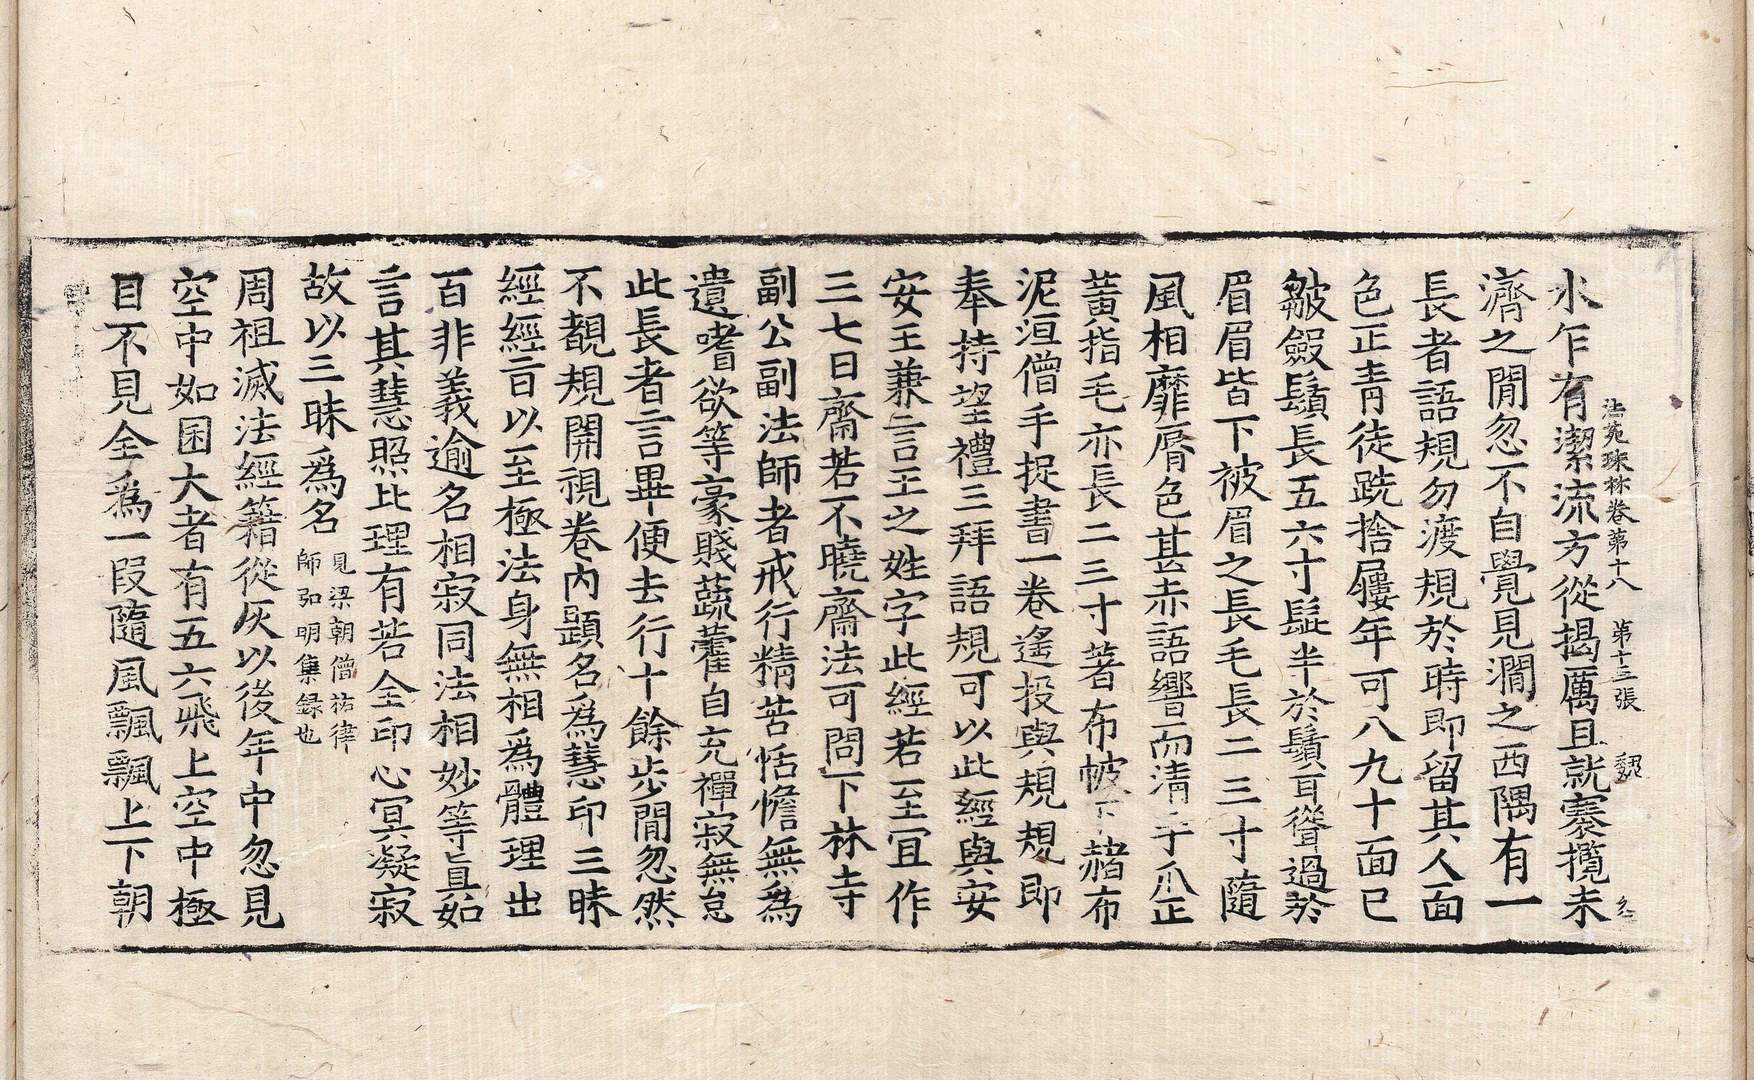 法苑珠林卷第十八 第十三張 魏
水乍有潔流方從揭厲且就褰攬未
濟之閒忽不自覺見澗之西隅有一
長者語規勿渡規於時即留其人面
色正青徒跣捨屨年可八九十面已
皺斂鬚長五六寸髭半於鬚耳聳過於
眉眉皆下被眉之長毛長二三寸隨
風相靡脣色甚赤語響而清手爪正
黃指毛亦長二三寸著布帔下赭布
泥洹僧手捉書一卷遙投與規規即
奉持望禮三拜語規可以此經與安
安王兼言王之姓字此經若至宜作
三七日齋若不曉齋法可問下林寺
副公副法師者戒行精苦恬憺無為
遺嗜欲等豪賤蔬藿自充禪寂無怠
此長者言畢便去行十餘步閒忽然
不覩規開視卷內題名為慧印三昧
經經言以至極法身無相為體理出
百非義逾名相寂同法相妙等真如
言其慧照比理有若全印心冥凝寂
故以三昧為名 見梁朝僧祐律師弘明集録也
周祖滅法經籍從灰以後年中忽見
空中如囷大者有五六飛上空中極
目不見全為一段隨風飄飄上下朝